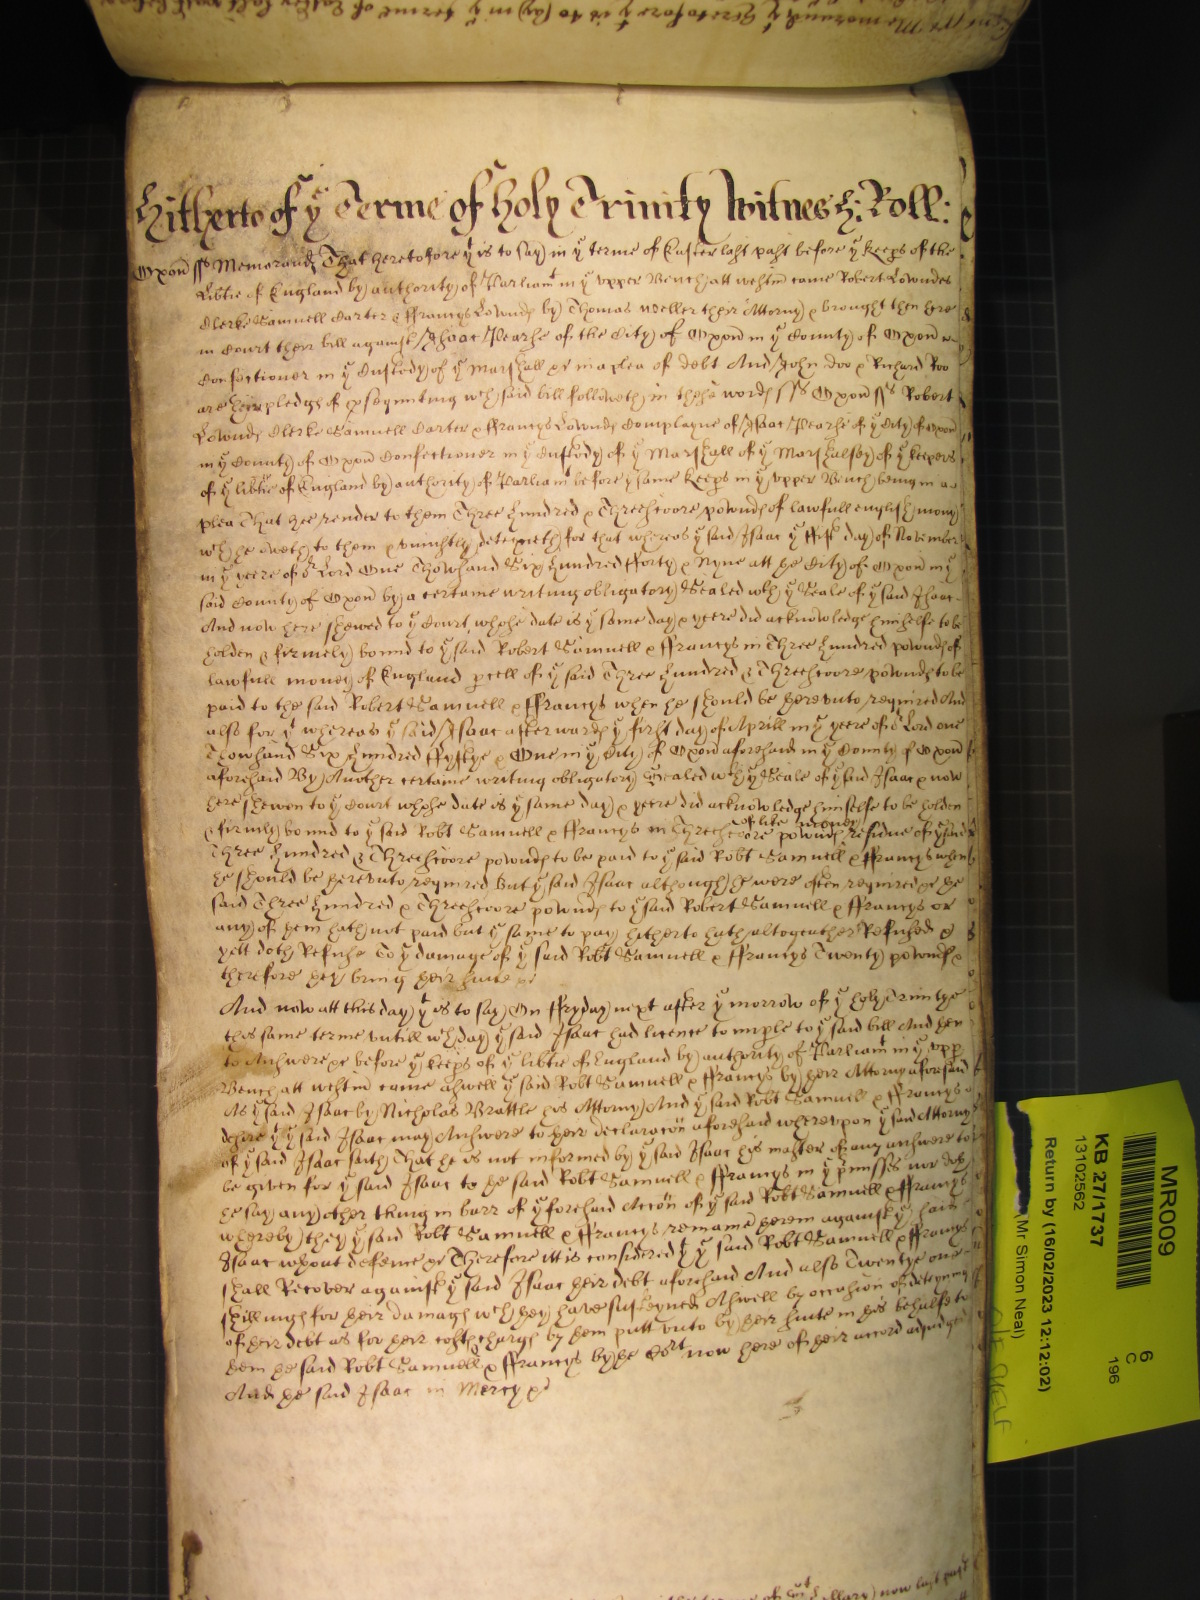 Hitherto of ye Terme of holy Trinity Witnes H: Roll:
Oxon ss Memorand That heretofore yt is to say in ye terme of Easter last past before ye keeps of the
Libtie of England by authority of Parliamt in ye upper Bench att westm came Robert Lowndes
Clerke Samuell Carter & ffrancys Lownds by Thomas Weller their Attorny & brought then here
in Court their bill against Isaac Pearse of the City of Oxon in ye County of Oxon
Confectioner in ye Custody of ye Marshall &c in a plea of debt And John doo & Richard Roo
are their pledgs of prosequuting wch said bill followeth in these words ss Oxon ss Robert
Lownds Clerke Samuell Carter & ffrancys Lownds Complayne of Isaac Pearse of ye City of Oxon
in ye County of Oxon Confectioner in ye Custody of ye Marshall of ye Marshalsey of ye keepers
of ye libtie of England by authority of Parliamt before ye same keeps in ye upper Bench being in a
plea That hee render to them Three hundred & Threescoore pownds of lawfull english mony
wch he oweth to them & uniustly deteyneth for that whereas ye said Isaac ye ffift day of November
in ye yeere of or Lord One Thowsand Six hundred fforty & Nyne att the City of Oxon in ye
said County of Oxon by a certaine writing obligatory Sealed wth ye Seale of ye said Isaac
And now here shewed to ye Court whose date is ye same day & yeere did acknowledge himselfe to be
holden & firmely bound to ye said Robert Samuell & ffrancys in Three hundred pownds of
lawfull money of England pcell of ye said Three hundred & Threescoore pownds to be
paid to the said Robert Samuell & ffrancys when he should be hereunto required And
also for yt whereas ye said Isaac afterwards ye first day of Aprill in ye yeere of or Lord one
Thowsand Six hundred ffyftye & One in ye City of Oxon aforesaid in ye County of Oxon
aforesaid By Another certaine writing obligatory Sealed wth ye Seale of ye said Isaac & now
here shewen to ye Court whose date is ye same day & yeere did acknowledge himselfe to be holden
& firmly bound to ye said Robt Samuell & ffrancys in Threescoore pownds of like money residue of ye said
Three hundred & Threescoore pownds to be paid to ye said Robt Samuell & ffrancys when
he should be hereunto required But ye said Isaac although he were often required &c the
said Three hundred & Threescoore pownds to ye said Robert Samuell & ffrancys or
any of them hath not paid but ye same to pay hitherto hath altogeather Refused &
yett doth Refuse To ye damage of ye said Robt Samuell & ffrancys Twenty pownds &
therefore they bring their suite &c
And now att this day yt is to say On ffryday next after ye morrow of ye holy Trinitye
this same terme untill wch day ye said Isaac had licence to imple to ye said bill And then
to Answere &c before ye keeps of ye libtie of England by authority of Parliamt in ye upp
Bench att westm came aswell ye said Robt Samuell & ffrancys by their Attorny aforesaid
As ye said Isaac by Nicholas Brattle his Attorny And ye said Robt Samuell & ffrancys
desire yt ye said Isaac may Answere to their declaracon aforesaid whereupon ye said Attorny
of ye said Isaac saith That he is not informed by ye said Isaac his master of any answere to
be given for ye said Isaac to the said Robt Samuell & ffrancys in ye pmisses nor doth
he say any other thing in barr of ye foresaid Accon of ye said Robt Samuell & ffrancys
whereby they ye said Robt Samuell & ffrancys remaine therein against ye said
Isaac wthout defence &c Therefore itt is considered yt ye said Robt Samuell & ffrancys
shall Recover against ye said Isaac their debt aforesaid And also Twentye one
shillings for their damags wch they have susteyned Aswell by occasion of deteyning
of their debt as for their costs & chargs by them putt unto by their suite in this behalfe to
them the said Robt Samuell & ffrancys by the Cort now here of their accord adjudged
And the said Isaac in Mercy &c
MR009
KB 27/1737
13102562
6
C
196
Mr Simon Neal)
Return by (16/02/2023 12:12:02)